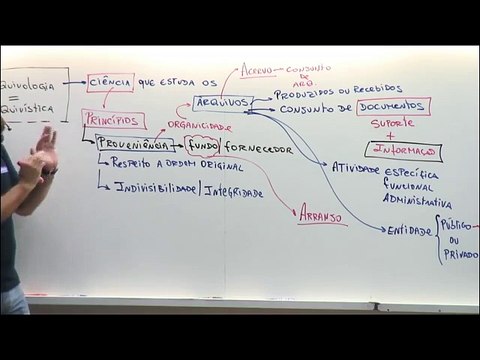 QUIVOLOGIA
=
QUIVÍSTICA
CIÊNCIA QUE ESTUDA OS
ACERVO → CONJUNTO
DE ARQ.
ARQUIVOS
PRODUZIDOS OU RECEBIDOS
CONJUNTO DE DOCUMENTOS
SUPORTE
+
INFORMAÇÃO
PRINCÍPIOS
ORGANICIDADE
PROVENIÊNCIA → FUNDO FORNECEDOR
RESPEITO A ORDEM ORIGINAL
INDIVISIBILIDADE / INTEGRIDADE
ARRANJO
ATIVIDADE ESPECÍFICA
FUNCIONAL
ADMINISTRATIVA
ENTIDADE { PÚBLICO
OU
PRIVADO